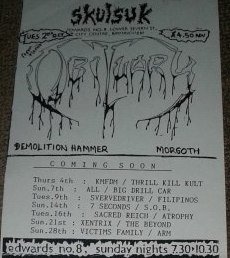 SKULSUK
EDWARDS NO.8, LOWER SEVERN ST
CITY CENTRE, BIRMINGHAM
TUES 2nd OCT
£4.50 ADV
OBITUARY
DEMOLITION HAMMER
MORGOTH
COMING SOON
Thurs 4th : KMFDM / THRILL KILL KULT
Sun.7th : ALL / BIG DRILL CAR
Tues.9th : SVERVEDRIVER / FILIPINOS
Sun.14th : 7 SECONDS / S.O.B.
Tues.16th : SACRED REICH / ATROPHY
Sun.21st : XENTRIX / THE BEYOND
Sun.28th : VICTIMS FAMILY / ARM
edwards no.8, sunday nights 7.30-10.30